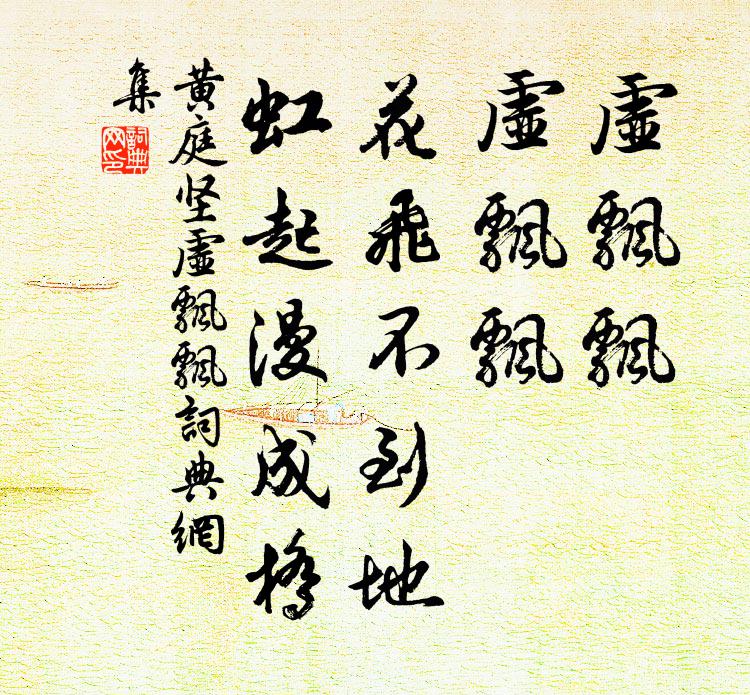 虛飄飄
虛飄飄
花飛不到地
虹起漫成橋
黄庭坚虛飄飄詞典網
集
詞典
网印